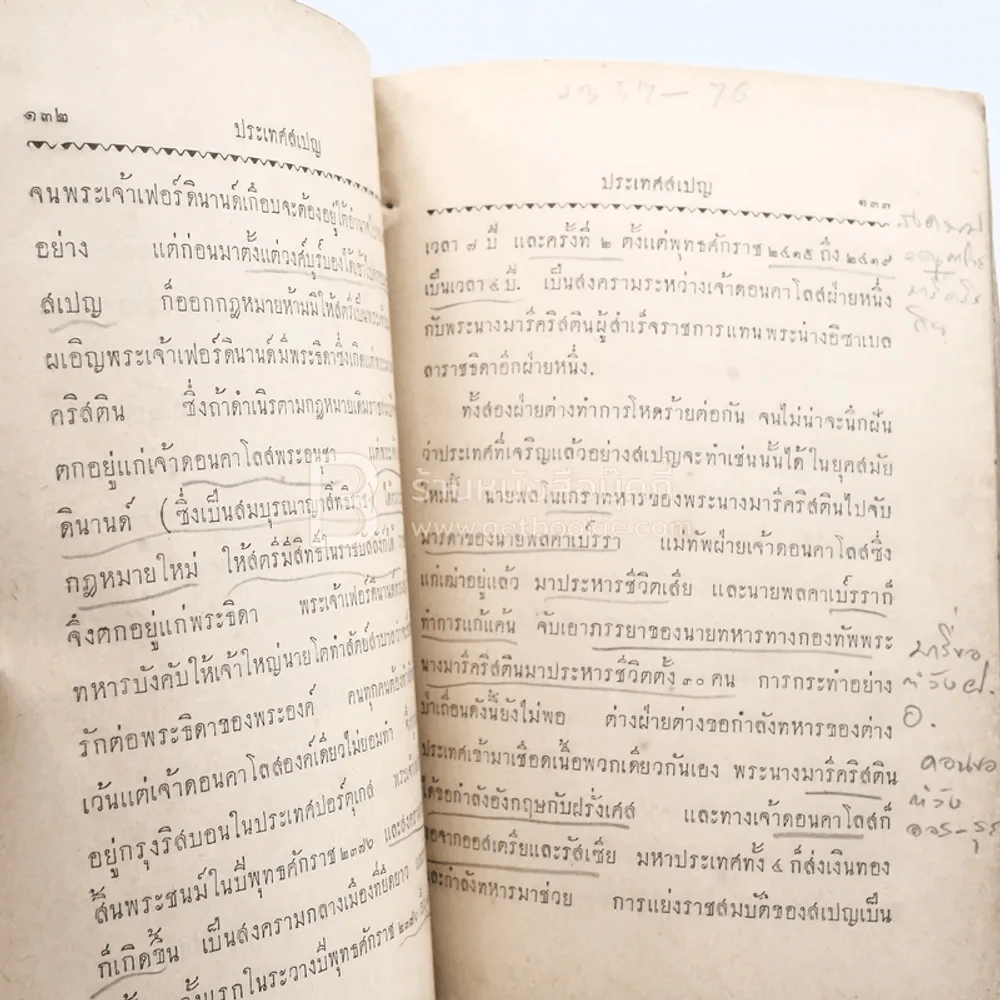 ๑๓๒
ประเทศสเปญ
จนพระเจ้าเฟอร์ดินานด์เกือบจะต้องอยู่ใต้อำนาจ
อย่าง แต่ก่อนมาตั้งแต่วงค์บุร์บองได้เข้าไป
สเปญ ก็ออกกฎหมายห้ามมิให้สตรีเป็น
ผเอิญพระเจ้าเฟอร์ดินานด์มีพระธิดาซึ่งเกิดแต่
คริสติน ซึ่งถ้าดำเนิรตามกฎหมายเดิม
ตกอยู่แก่เจ้าดอนคาโลสพระอนุชา
ดินานด์ (ซึ่งเป็นสมบุรณาญาสิ้ทธิราช)
กฎหมายใหม่ ให้สตรีมีสิทธิ์ในราชบัลลังก์ได้
จึงตกอยู่แก่พระธิดา พระเจ้าเฟอร์ดินานด์
ทหารบังคับให้เจ้าใหญ่นายโตทำสัตย์สาบาลว่า
รักต่อพระธิดาของพระองค์ คนทุกคนต้อง
เว้นแต่เจ้าดอนคาโลสองค์เดียวไม่ยอมทำ
อยู่กรุงริสบอนในประเทศปอร์ตุเกส
สิ้นพระชนม์ในปีพุทธศักราช ๒๓๗๖
ก็เกิดขึ้น เป็นสงครามกลางเมืองที่ยืดยาว
แรกในระวางปีพุทธศักราช ๒๓๗๖
๒๓๗๖ – 76
ประเทศสเปญ
๑๓๓
เวลา ๗ ปี และครั้งที่ ๒ ตั้งแต่พุทธศักราช ๒๔๑๕ ถึง ๒๔๑๙
เป็นเวลา ๔ ปี. เป็นสงครามระหว่างเจ้าดอนคาโลสฝ่ายหนึ่ง
กับพระนางมารีคริสตินผู้สำเร็จราชการแทนพระนางอิซาเบล
ลาราชธิดาอีกฝ่ายหนึ่ง.
ทั้งสองฝ่ายต่างทำการโหดร้ายต่อกัน จนไม่น่าจะนึกฝัน
ว่าประเทศที่เจริญแล้วอย่างสเปญจะทำเช่นนั้นได้ ในยุคสมัย
ใหม่นี้ นายพลโนเกราทหารของพระนางมารีคริสตินไปจับ
มารดาของนายพลคาเบ์ร์รา แม่ทัพฝ่ายเจ้าดอนคาโลสซึ่ง
แก่เฒ่าอยู่แล้ว มาประหารชีวิตเสีย และนายพลคาเบ์ร์ราก็
ทำการแก้แค้น จับเอาภรรยาของนายทหารทางกองทัพพระ
นางมารีคริสตินมาประหารชีวิตตั้ง ๓๐ คน การกระทำอย่าง
ป่าเถื่อนดังนี้ยังไม่พอ ต่างฝ่ายต่างขอกำลังทหารของต่าง
ประเทศเข้ามาเชือดเนื้อพวกเดียวกันเอง พระนางมารีคริสติน
ได้ขอกำลังอังกฤษกับฝรั่งเศส และทางเจ้าดอนคาโลสก็
ขอจากออสเตรียและรัสเซีย มหาประเทศทั้ง ๔ ก็ส่งเงินทอง
และกำลังทหารมาช่วย การแย่งราชสมบัติของสเปญเป็น
ร้านหนังสือบุ๊คกี้
www.getbookie.com